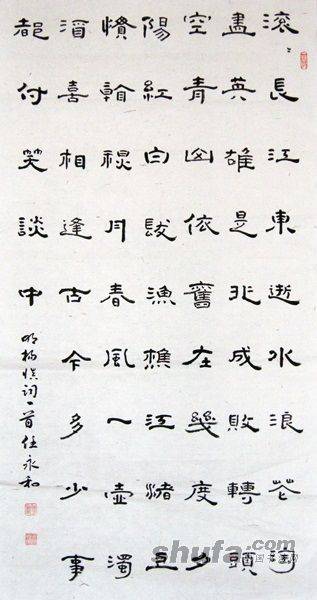 滚〻長江東逝水浪花淘
盡英雄是非成敗轉頭
空青山依舊在幾度夕
陽紅白髮漁樵江渚上
慣看秋月春風一壺濁
酒喜相逢古今多少事
都付笑談中
明杨慎词一首任永和
shufa.com